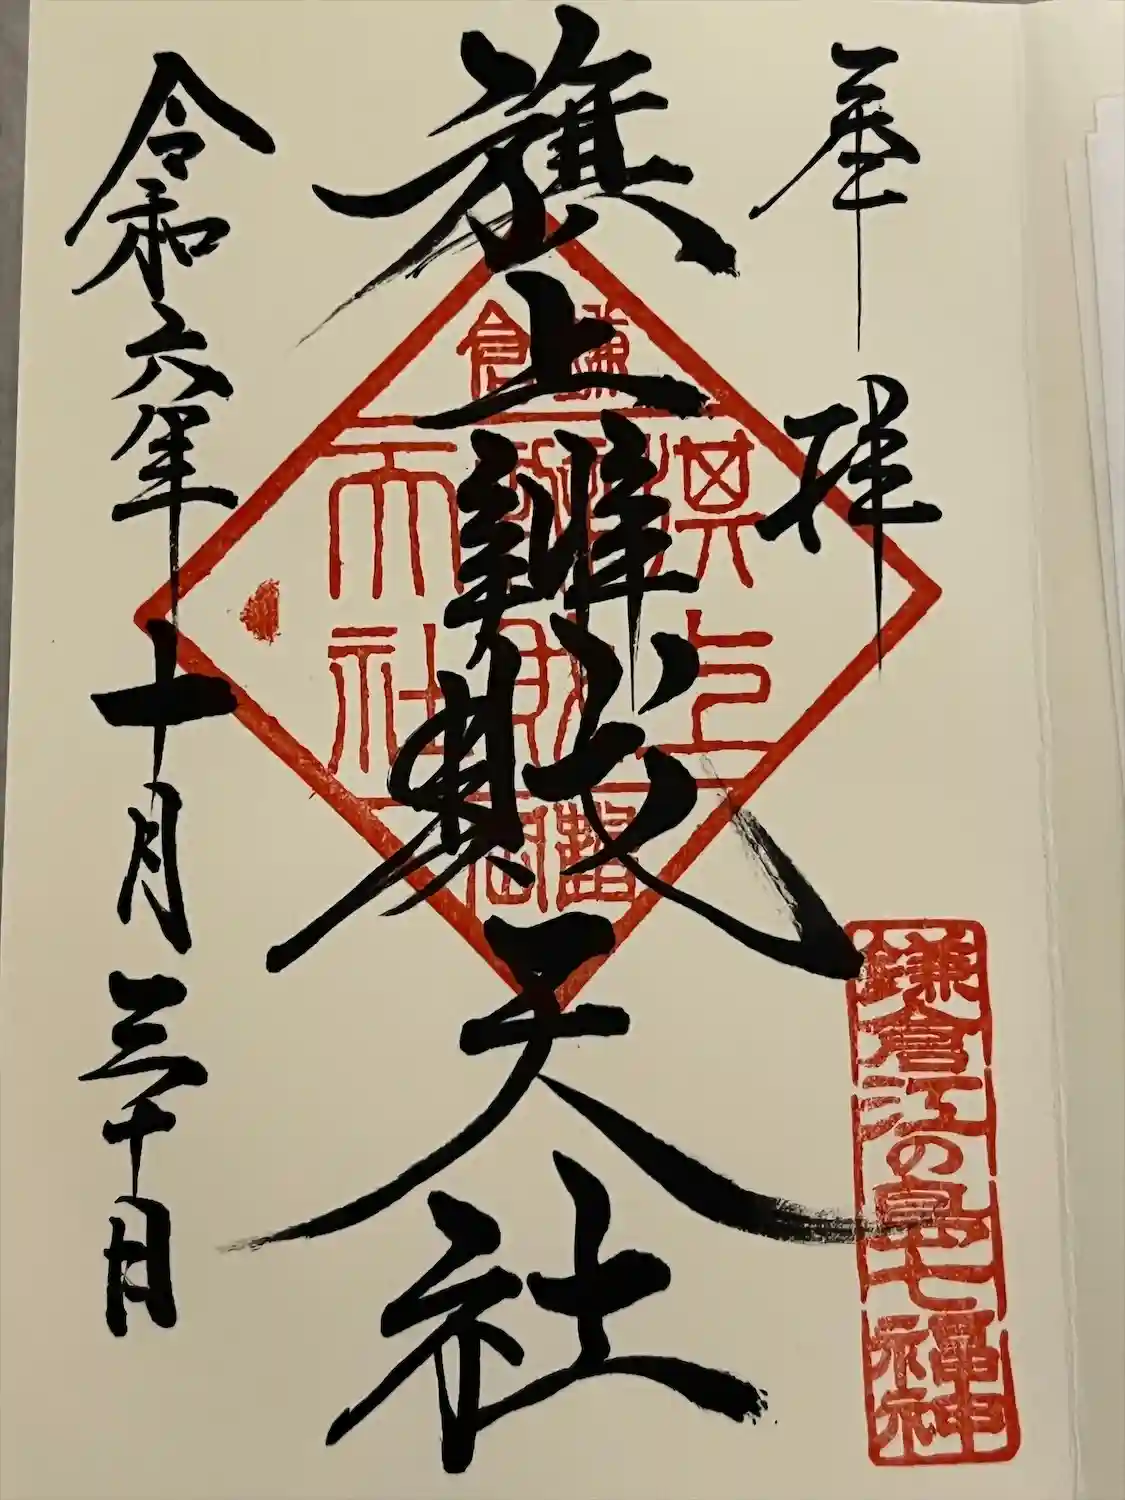 奉拝
旗上辨財天社
令和六年十月三十日
鎌倉
旗上
辨財
天社
鎌倉江の島七福神